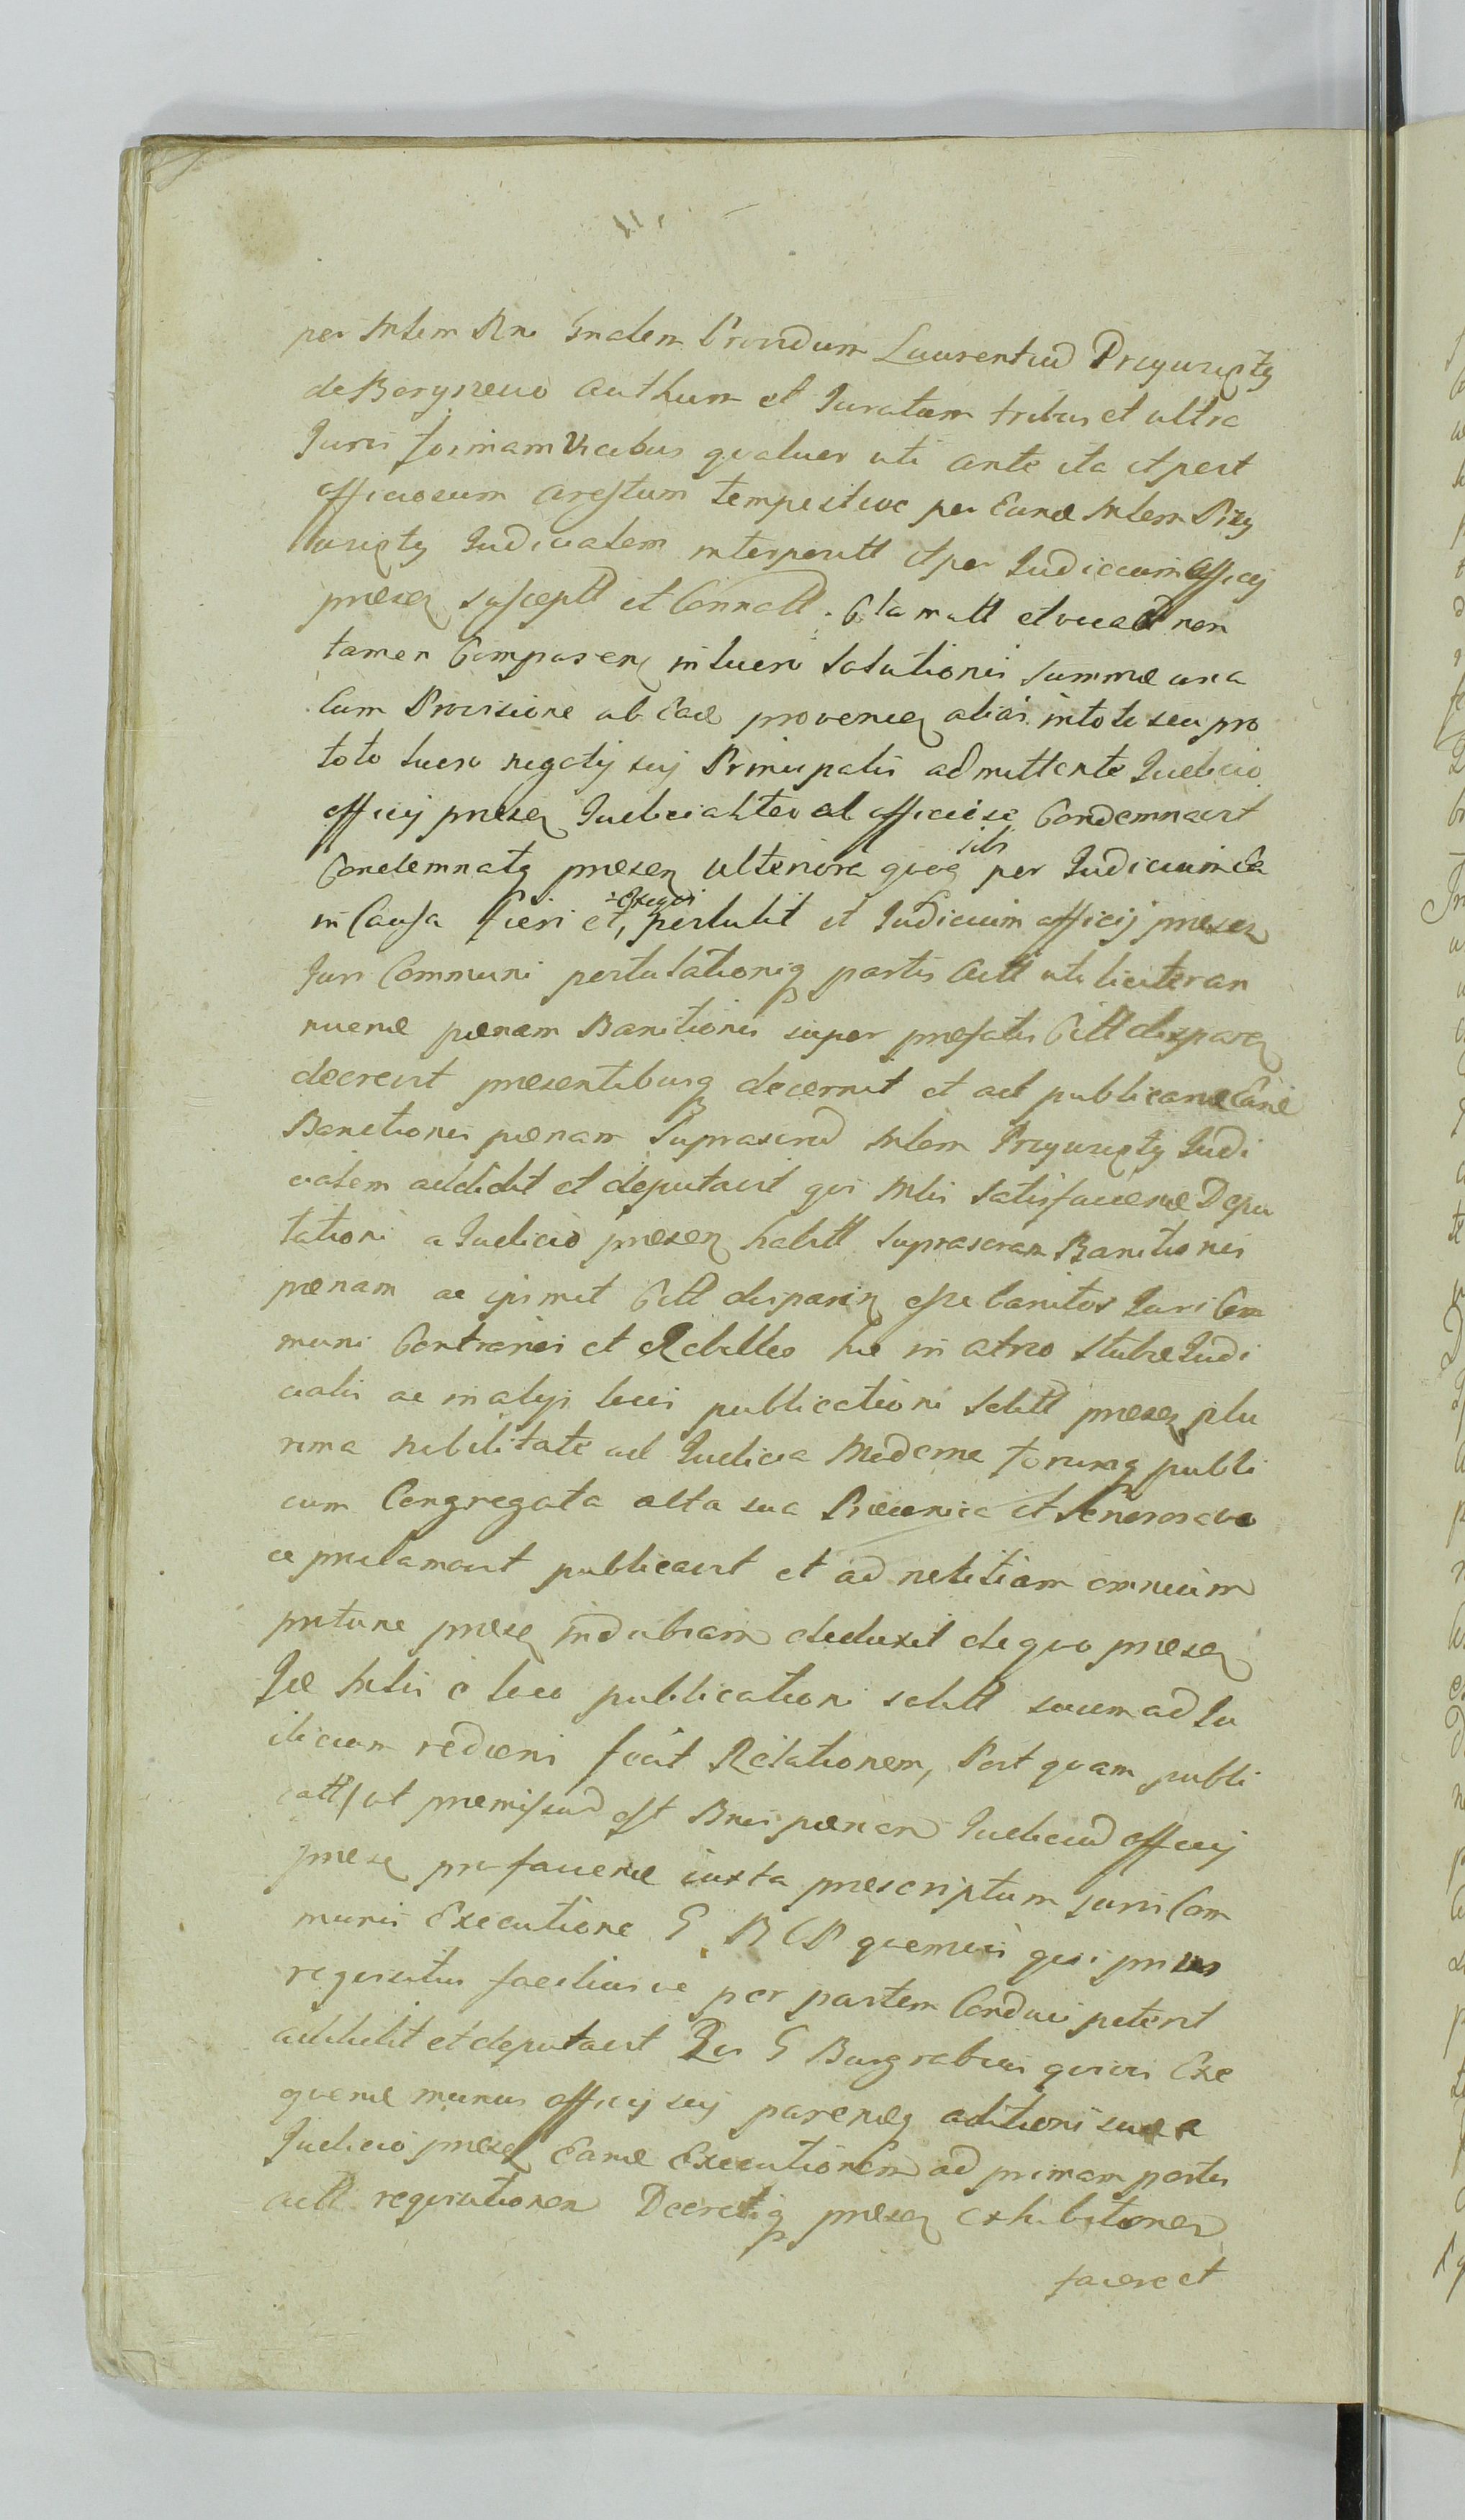 per Mlem Rni Gnalem Providum Laurentiud Przyurzęty
de Borzyszewo authum et Juratum tribus et ultra
Juris formam Vicibus qvatuor uti ante ita et post
officiosum arestum tempestive per Eund Mlem Przy
urzęty Judicialem interpositt et per Judiciumofficij
presen susceptt et Connott. Clamatt et vocatt non
tamen Comparen in lucro Solutionis Summæ una
Cum Provisione ab Ead provenien alias intoto seu pro
toto lucro negotij sui Principalis admittente Judicio
officij presen Judicialiter ac officiose Condemnavit
Condemnatq presen ulteriora qvoq sibi per Judicium Ea
in Causa fieri et, Exeqvi postulit et Judicium officij presen
Juri Communi postulationiq partis Actt uti licite an
nuend pœnam Banitionis super prefatis Citt disparen
decrevit presentibusq decernit et ad publicand Eand
Banitionis pœnam Suprascrid Mlem Przyurzęty Judi
cialem addidit et deputavit qvi Mlis Satisfaciend Depu
tationi a Judicio presen habitt Suprascram Banitionis
pœnam ac ipsmet Citt disparen esse banitos Juri Com
muni Contrarios et Rebelles hic in atrio Stubæ Judi
cialis ac in alijs locis publicationi Solitt presen plu
rima nobilitate ad Judicia Moderna forumq publi
cum Congregata alta sua Præconica et Senorosa vo
ce proclamavit publicavit et ad notitiam omnium
presen indubiam deduxit de qvo presen
Jce Mlis e loco publicationi solitt suumad Ju
dicium rediens fecit Relationem, Post qvam publi
catt/ut premissud est Bnis pœnam Judiciud officij
presen pro faciend iuxta prescriptum juris Com
munis Executione G B C P qvemvis qvi prius
reqvisitus faciliusve per partem Conduci poterit
addidit et deputavit Qui G Burgrabius qvivis Exe
qvend munus officij sui parendq aditioni suæ a
Judicio presen Eand Executionem ad primam partis
actt reqvisitionem Decretiq presen exhibitionem
facere et